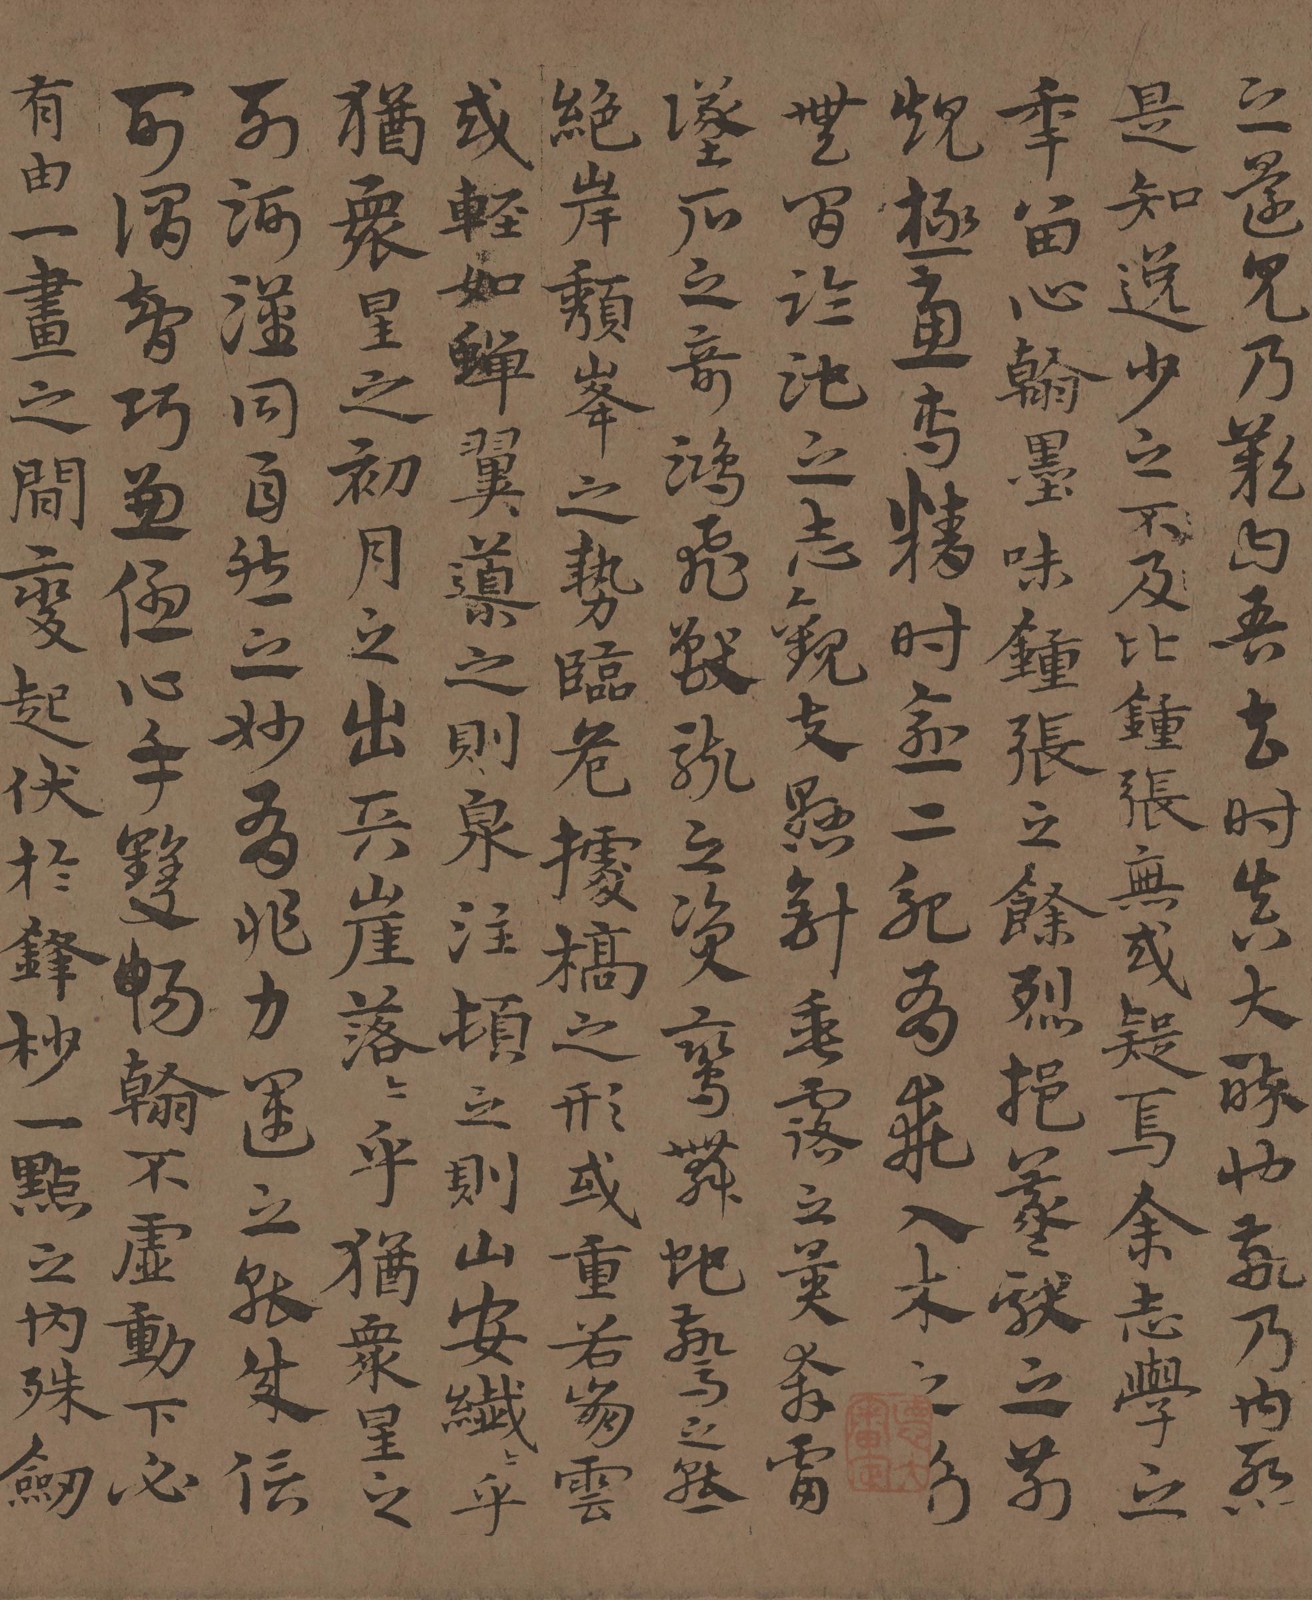 之還見乃歎曰吾去時真大醉也敬乃內慙
是知逸少之不及比鍾張無或疑焉余志學之
年留心翰墨味鍾張之餘烈挹羲獻之前
規極慮專精時逾二紀有乖入木之術
無間臨池之志觀夫懸針垂露之異奔雷
墜石之奇鴻飛獸駭之資鸞舞蛇驚之態
絕岸頹峯之勢臨危據槁之形或重若崩雲
或輕如蟬翼導之則泉注頓之則山安纖〻乎
猶衆星之初月之出天崖落〻乎猶衆星之
列河漢同自然之妙有非力運之能成信
可謂智巧兼優心手雙暢翰不虛動下必
有由一畫之間變起伏於鋒杪一點之內殊衂